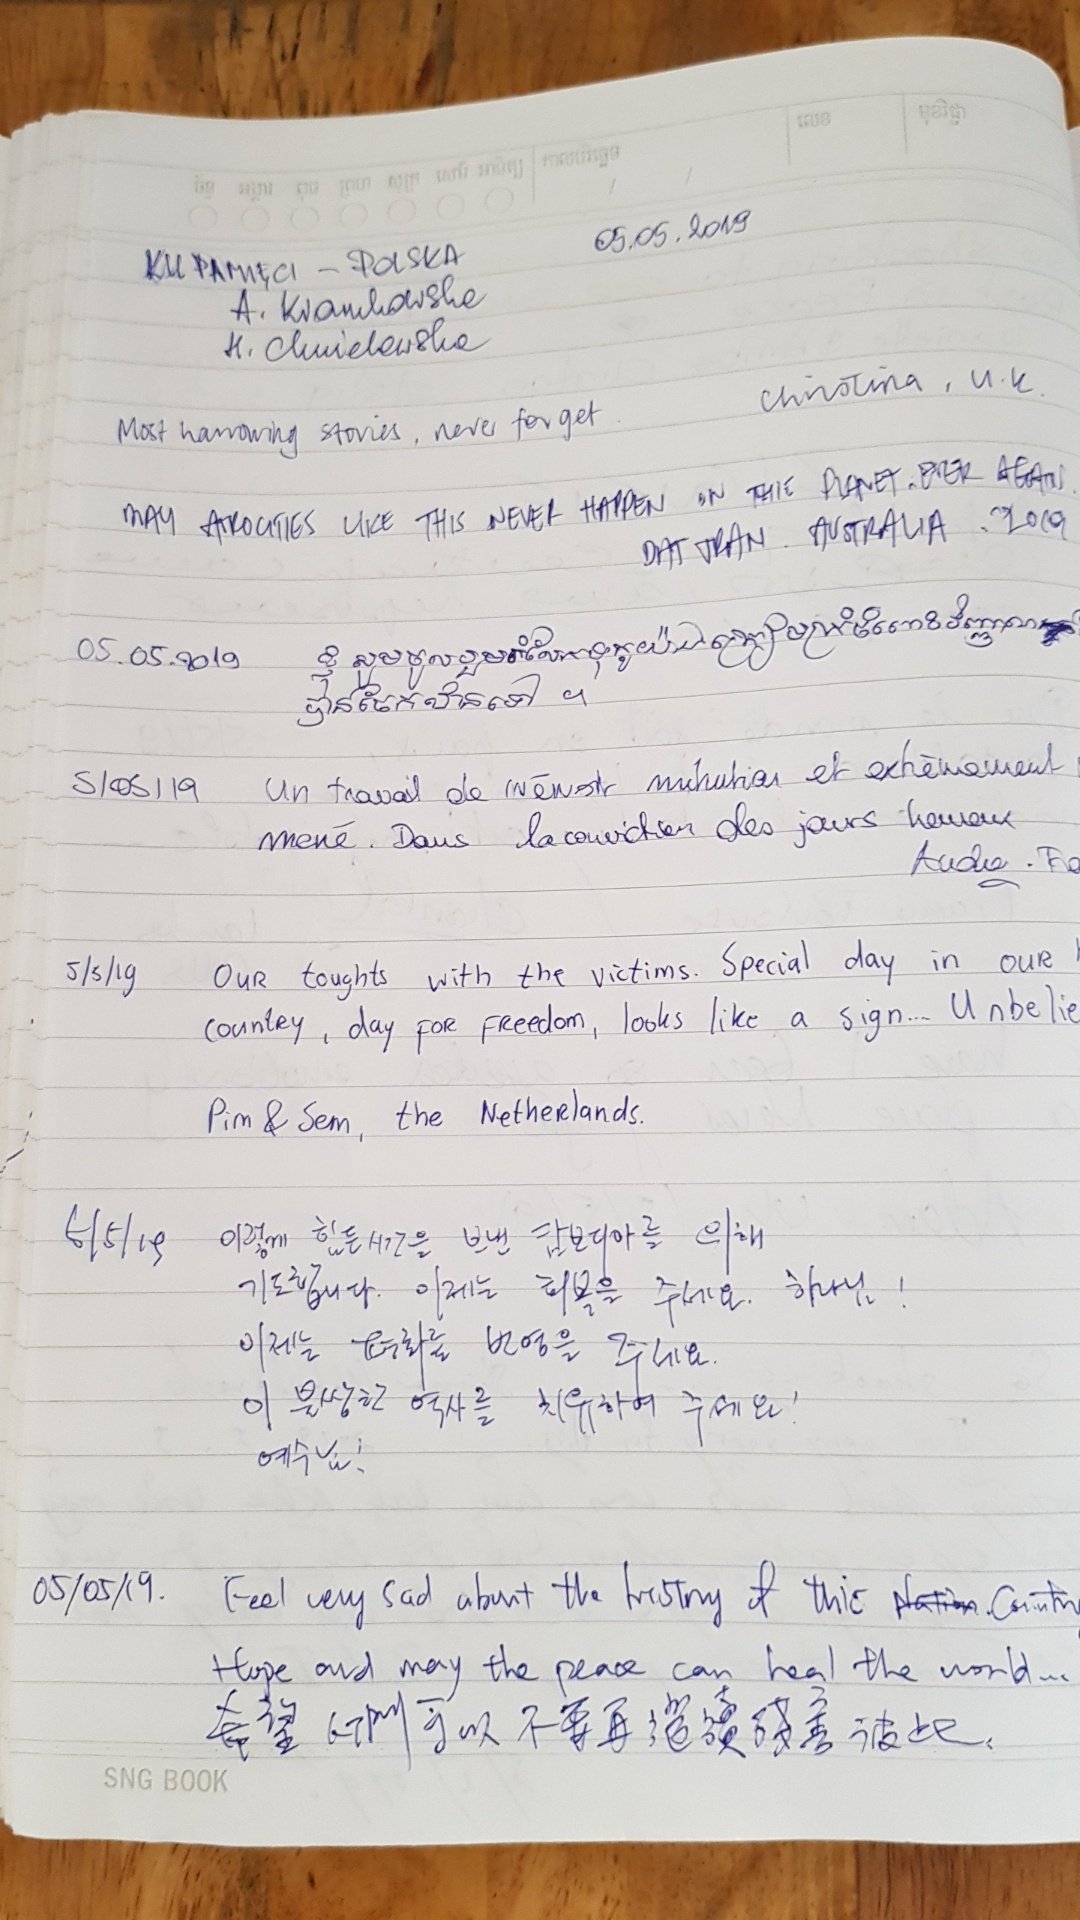 KU PAMIĘCI - POLSKA 05.05.2019
A.
H. Chmielewska
Most harrowing stories, never forget. Christina, U.K.
MAY ATROCITIES LIKE THIS NEVER HAPPEN ON THIS PLANET. EVER AGAIN.
DAT TRAN. AUSTRALIA. 2019
05.05.2019 ខ្ញុំ សូមចូលរួមរំលែកទុក្ខ
បានចែកឋានទៅ ។
5/05/19 Un travail de mémoire minutieux et extrêmement
mené. Dans la conviction des jours heureux
5/5/19 OUR toughts with the victims. Special day in OUR
country, day for freedom, looks like a sign... Unbelie
Pim & Sem, the Netherlands.
5/5/19 이렇게 힘든 시간을 보낸 캄보디아를 위해
기도합니다. 이제는 회복을 주세요. 하나님!
이제는 평화를 번영을 주세요.
이 불쌍한 역사를 치유하여 주세요!
예수님!
05/05/19. Feel very sad about the history of this Nation. Country
Hope and may the peace can heal the world...
希望 可以不要再 殘害彼此.
SNG BOOK